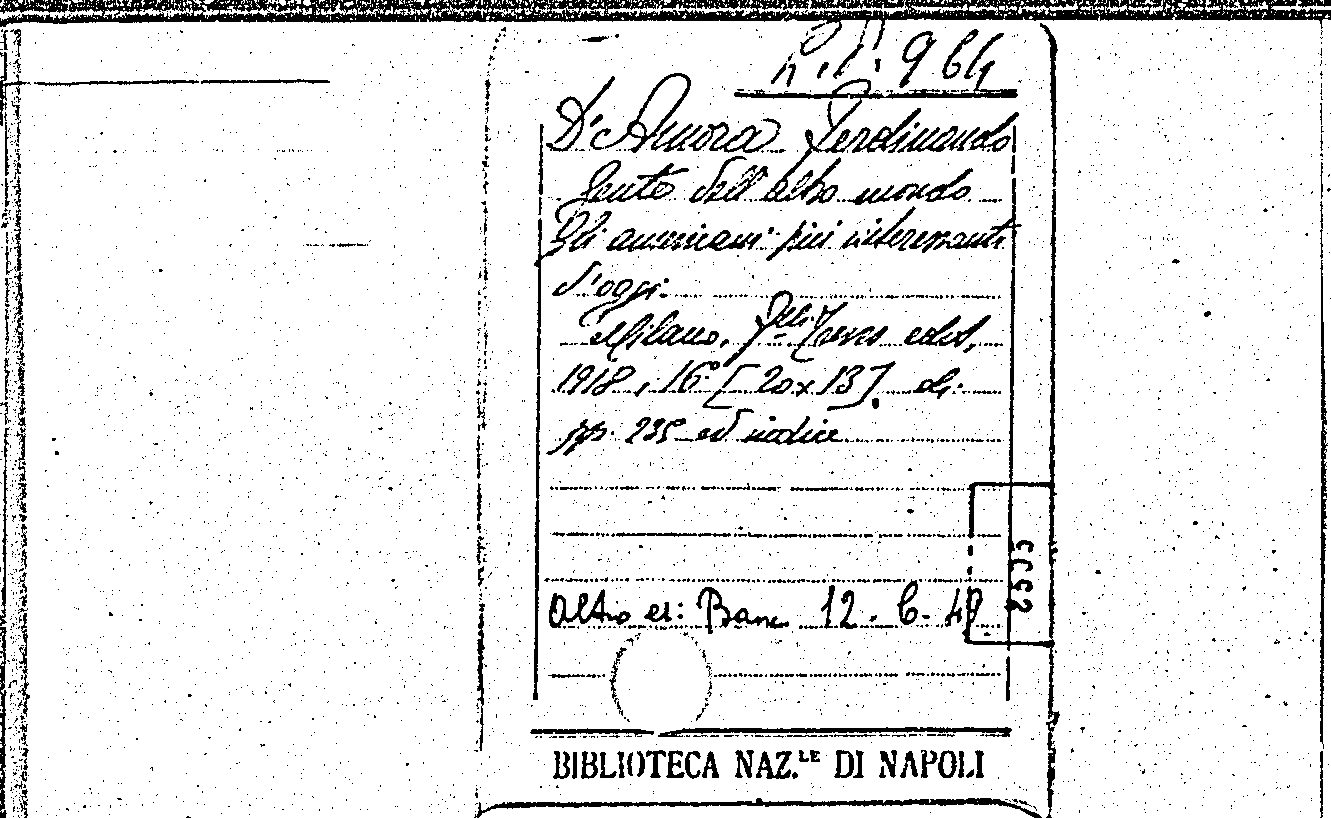 964
D'Amora Ferdinando
Gente dell'altro mondo
Gli americani più interessanti
d'oggi.
Milano, F.lli Treves edit,
1918, 16° [20x13]. di
pp. 235 ed indice
Altro es: Banc 12. C. 49
BIBLIOTECA NAZ.LE DI NAPOLI